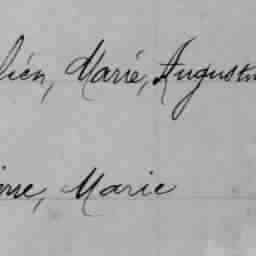 lién, Marie, Augustin
rre, Marie